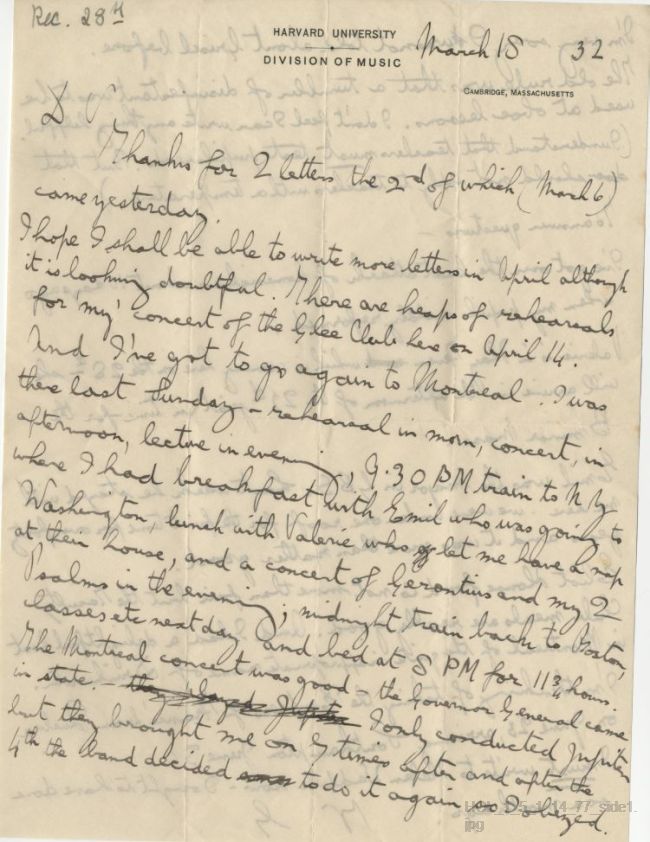 Rec. 28th
HARVARD UNIVERSITY
DIVISION OF MUSIC
March 18 32
CAMBRIDGE, MASSACHUSETTS
D
Thanks for 2 letters the 2nd of which (March 6)
came yesterday.
I hope I shall be able to write more letters in April although
it is looking doubtful. There are heaps of rehearsals
for 'my' concert of the Glee Club here on April 14.
And I've got to go again to Montreal. I was
there last Sunday – rehearsal in morn, concert, in
afternoon, lecture in evening; 9.30 PM train to N Y
where I had breakfast with Emil who was going to
Washington, lunch with Valerie who let me have a nap
at their house, and a concert of Gerontius and my 2
Psalms in the evening; midnight train back to Boston,
classes etc next day and bed at 8 PM for 11¾ hours.
The Montreal concert was good – the Governor General came
in state. – they Jupiter I only conducted Jupiter
but they brought me on 7 times after and after the
4th the band decided to do it again so I obeyed.
side1.
jpg